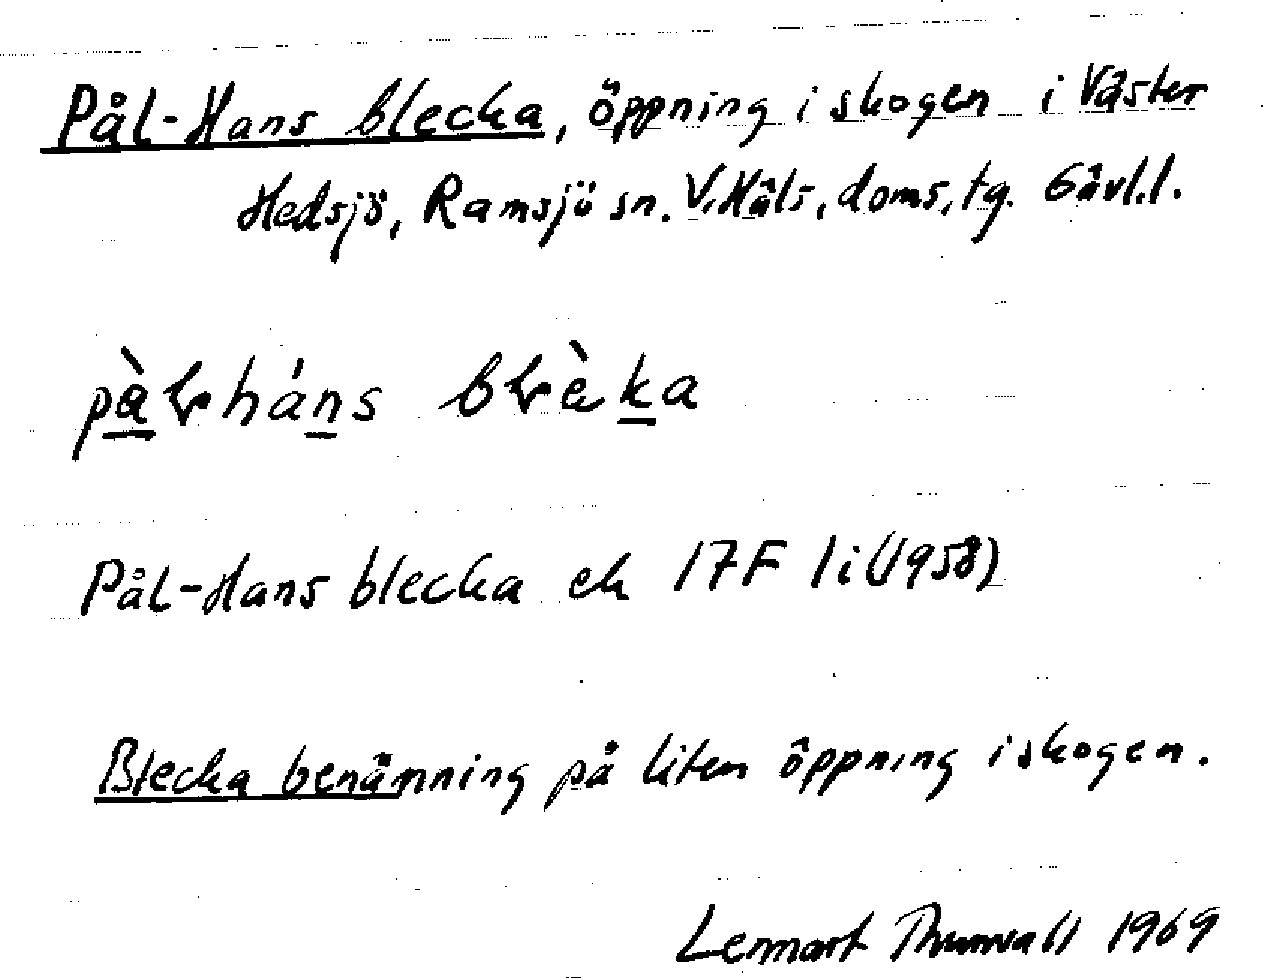 Pål-Hans blecka, öppning i skogen i Väster
Hedsjö, Ramsjö sn. V. Häls. doms. tg. Gävl.l.
pàɽháns bɽèka
Pål-Hans blecka ek 17F 1i (1958)
Blecka benämning på liten öppning i skogen.
Lennart Thunvall 1969